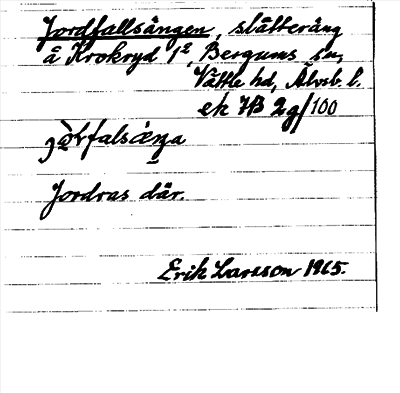 Jordfallsängen, slåtteräng
å Krokryd 1², Bergums sn,
Vättle hd, Älvsb. l.
ek HB 2g/100
Jordras där.
Erik Larsson 1965.